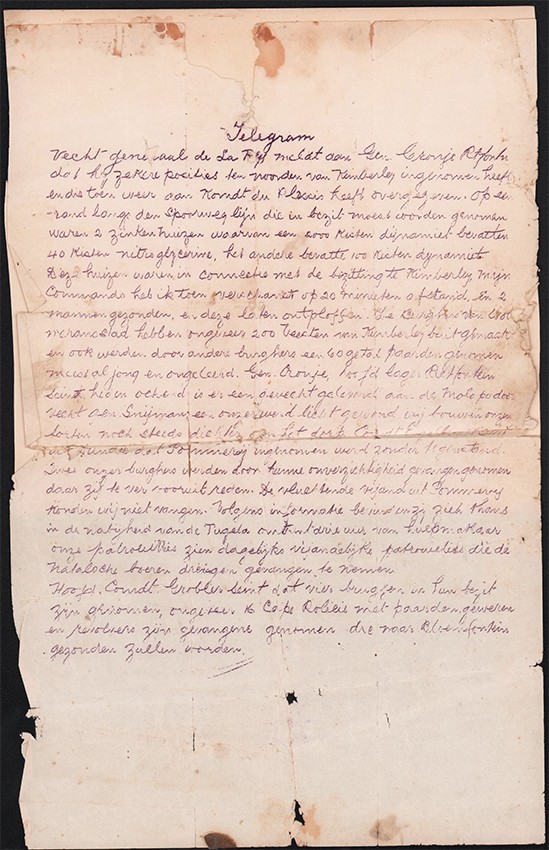 Telegram
Vecht generaal de La Rey meldt aan Gen. Cronje Rietfontein
dat hy zekere posities ten noorden van Kimberley ingenomen heeft
en die toen weer aan Komdt du Plessis heeft overgegeven. Op een
rand langs den Spoorweg lijn die in bezit moest worden genomen
waren 2 zinken huizen waarvan een 2000 kisten dynamiet bevatten
40 Kisten nitroglycerine, het andere bevatte 100 kisten dynamiet
Deze huizen waren in connectie met de bezitting te Kimberley Mijn
Commando heb ik toen verschanst op 20 minuten afstand, en 2
mannen gezonden, en deze laten ontploffen. De Burghers van Wol
maranstad hebben ongeveer 200 Beesten van Kimberley buit gemaakt
en ook werden door andere burghers een 60 getal paarden genomen
meestal jong en ongeleerd. Gen. Cronje, Hoofd lager Rietfontein
seint heden ochend is er een gevecht geleverd aan de Molopo door
Vecht Gen. Snijman, een onzer werd licht gewond wij bouwen onze
forten noch steeds dichter aan het dorp.
uit Dundee dat Pommeroy ingenomen werd zonder tegenstand.
Twee onzer burghers werden door hunne onverzichtigheid gevangen genomen
daar zij te ver vooruit reden. De vluchtende vijand uit Pommeroy
konden wij niet vangen. Volgens informatie bevinden zij zich thans
in de nabijheid van de Tugela omtrent drie uur van Hulpmakaar
onze patrouilles zien dagelijks vijandelijke patrouilles die de
Natalsche boeren dreigen gevangen te nemen
Hoofd. Comdt. Grobler seint dat vier bruggen in hun bezit
zijn genomen, ongeveer 16 Cape Police met paarden, geweren
en revolvers zijn gevangene genomen die naar Bloemfontein
gezonden zullen worden.